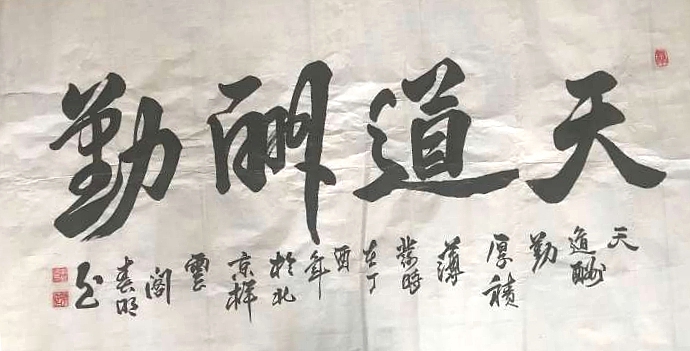 天道酬勤
天道酬勤厚積薄發時在丁酉年於北京祥雲閣